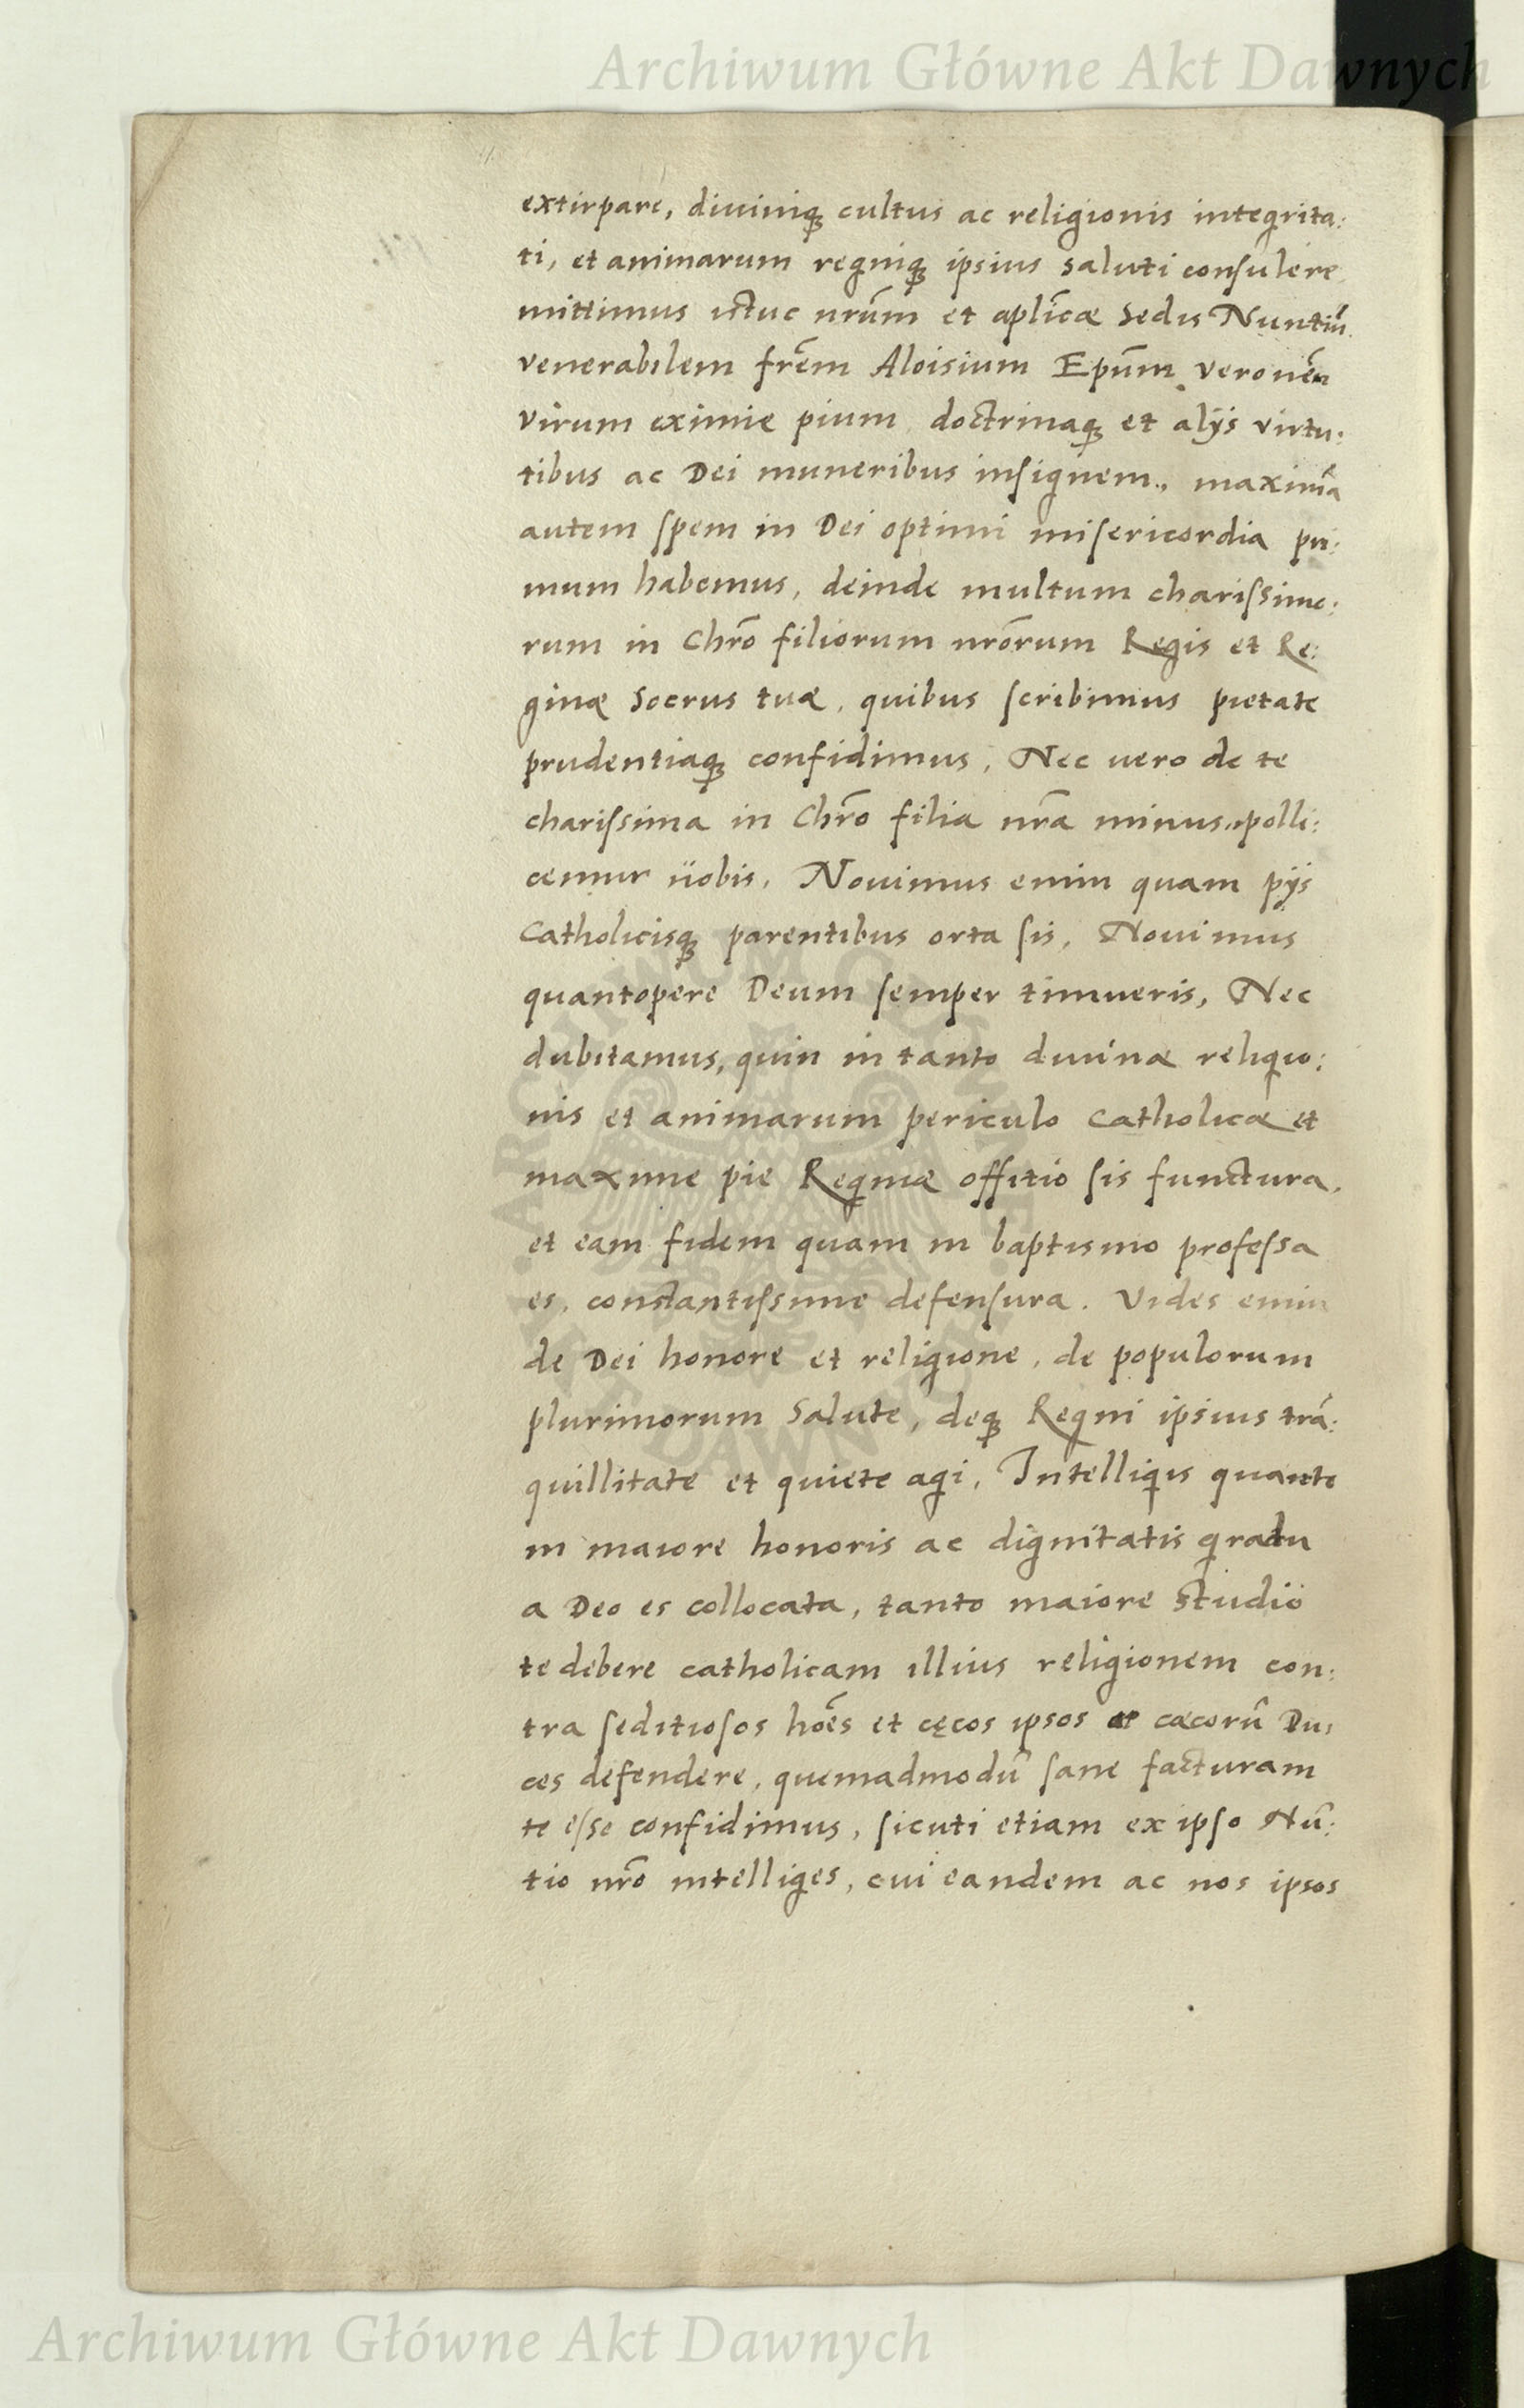 Archiwum Główne Akt Dawnych
extirpare, diuiniq; cultus ac religionis integrita:
ti, et animarum regniq; ipsius saluti consulere
mittimus istuc nr̄um et aplīcae Sedis Nuntiū
venerabilem frēm Aloisium Ep̄um veronēn
virum eximie pium doctrinaq; et alijs virtu:
tibus ac Dei muneribus insignem, maximā
autem spem in Dei optimi misericordia pri:
mum habemus, deinde multum charissimo:
rum in Chrō filiorum nrōrum Regis et Re:
ginae Socrus tuae, quibus scribimus pietate
prudentiaq; confidimus, Nec uero de te
charissima in Chrō filia nrā minus polli:
cemur nobis, Nouimus enim quam pijs
Catholicisq; parentibus orta sis, Nouimus
quantopere Deum semper timueris, Nec
dubitamus, quin in tanto diuinae religio:
nis et animarum periculo Catholicae et
maxime pie Reginae offitio sis functura,
et eam fidem quam in baptismo professa
es, constantissime defensura. Vides enim
de Dei honore et religione, de populorum
plurimorum Salute, deq; Regni ipsius trā:
quillitate et quiete agi, Intelligis quanto
in maiore honoris ac dignitatis gradu
a Deo es collocata, tanto maiore studio
te debere catholicam illius religionem con:
tra seditiosos hoēs et cęcos ipsos et caecorū Du:
ces defendere, quemadmodū sane facturam
te esse confidimus, sicuti etiam ex ipso Nū:
tio nrō intelliges, cui eandem ac nos ipsos
ARCHIWUM GŁÓWNE AKT DAWNYCH
Archiwum Główne Akt Dawnych